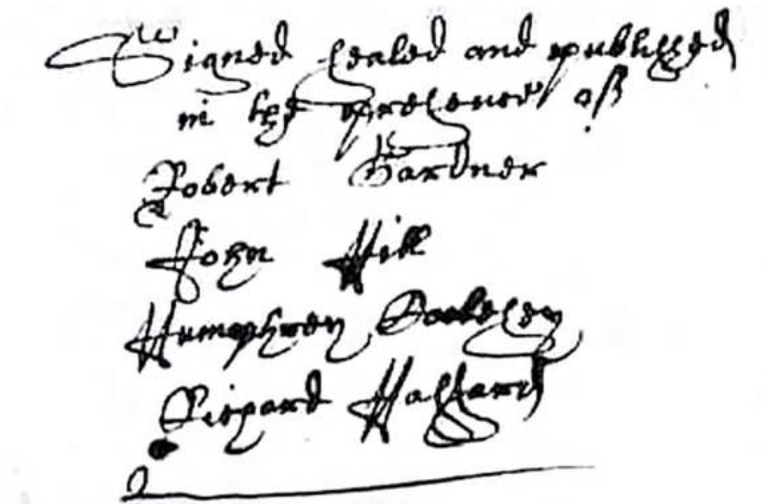 Signed sealed and published
in the presence of
Robert Gardner
John Hill
Humphrey
Richard